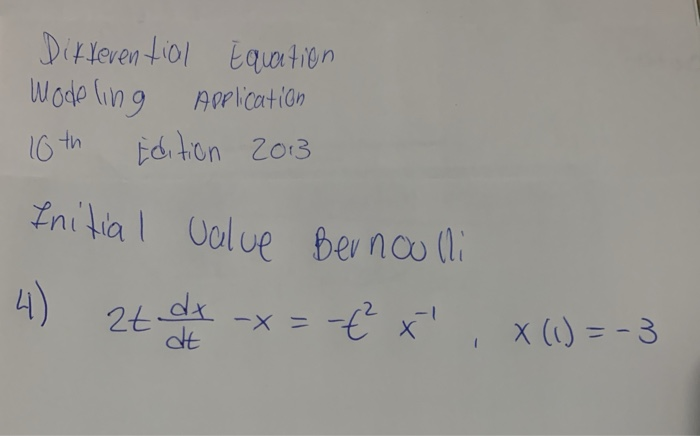 Differential Equation
Modeling Application
10th Edition 2013
Initial Value Bernoulli
4) 2t dx/dt -x = -t² x⁻¹ , x(1) = -3